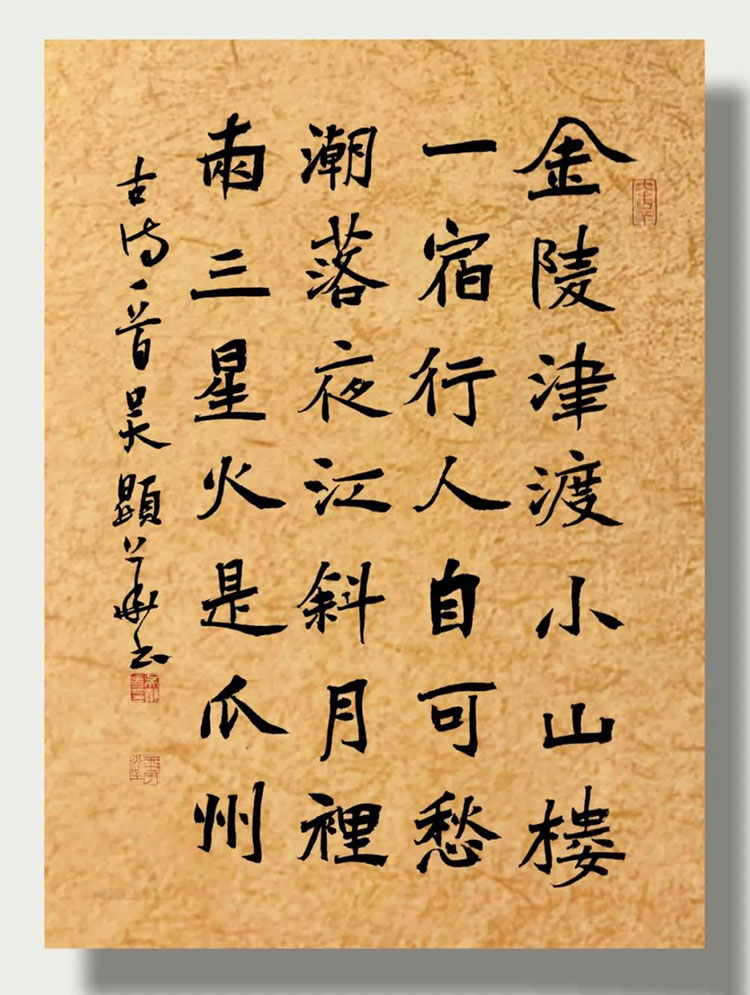 金陵津渡小山樓
一宿行人自可愁
潮落夜江斜月裡
兩三星火是瓜州
古诗一首吴顯華书